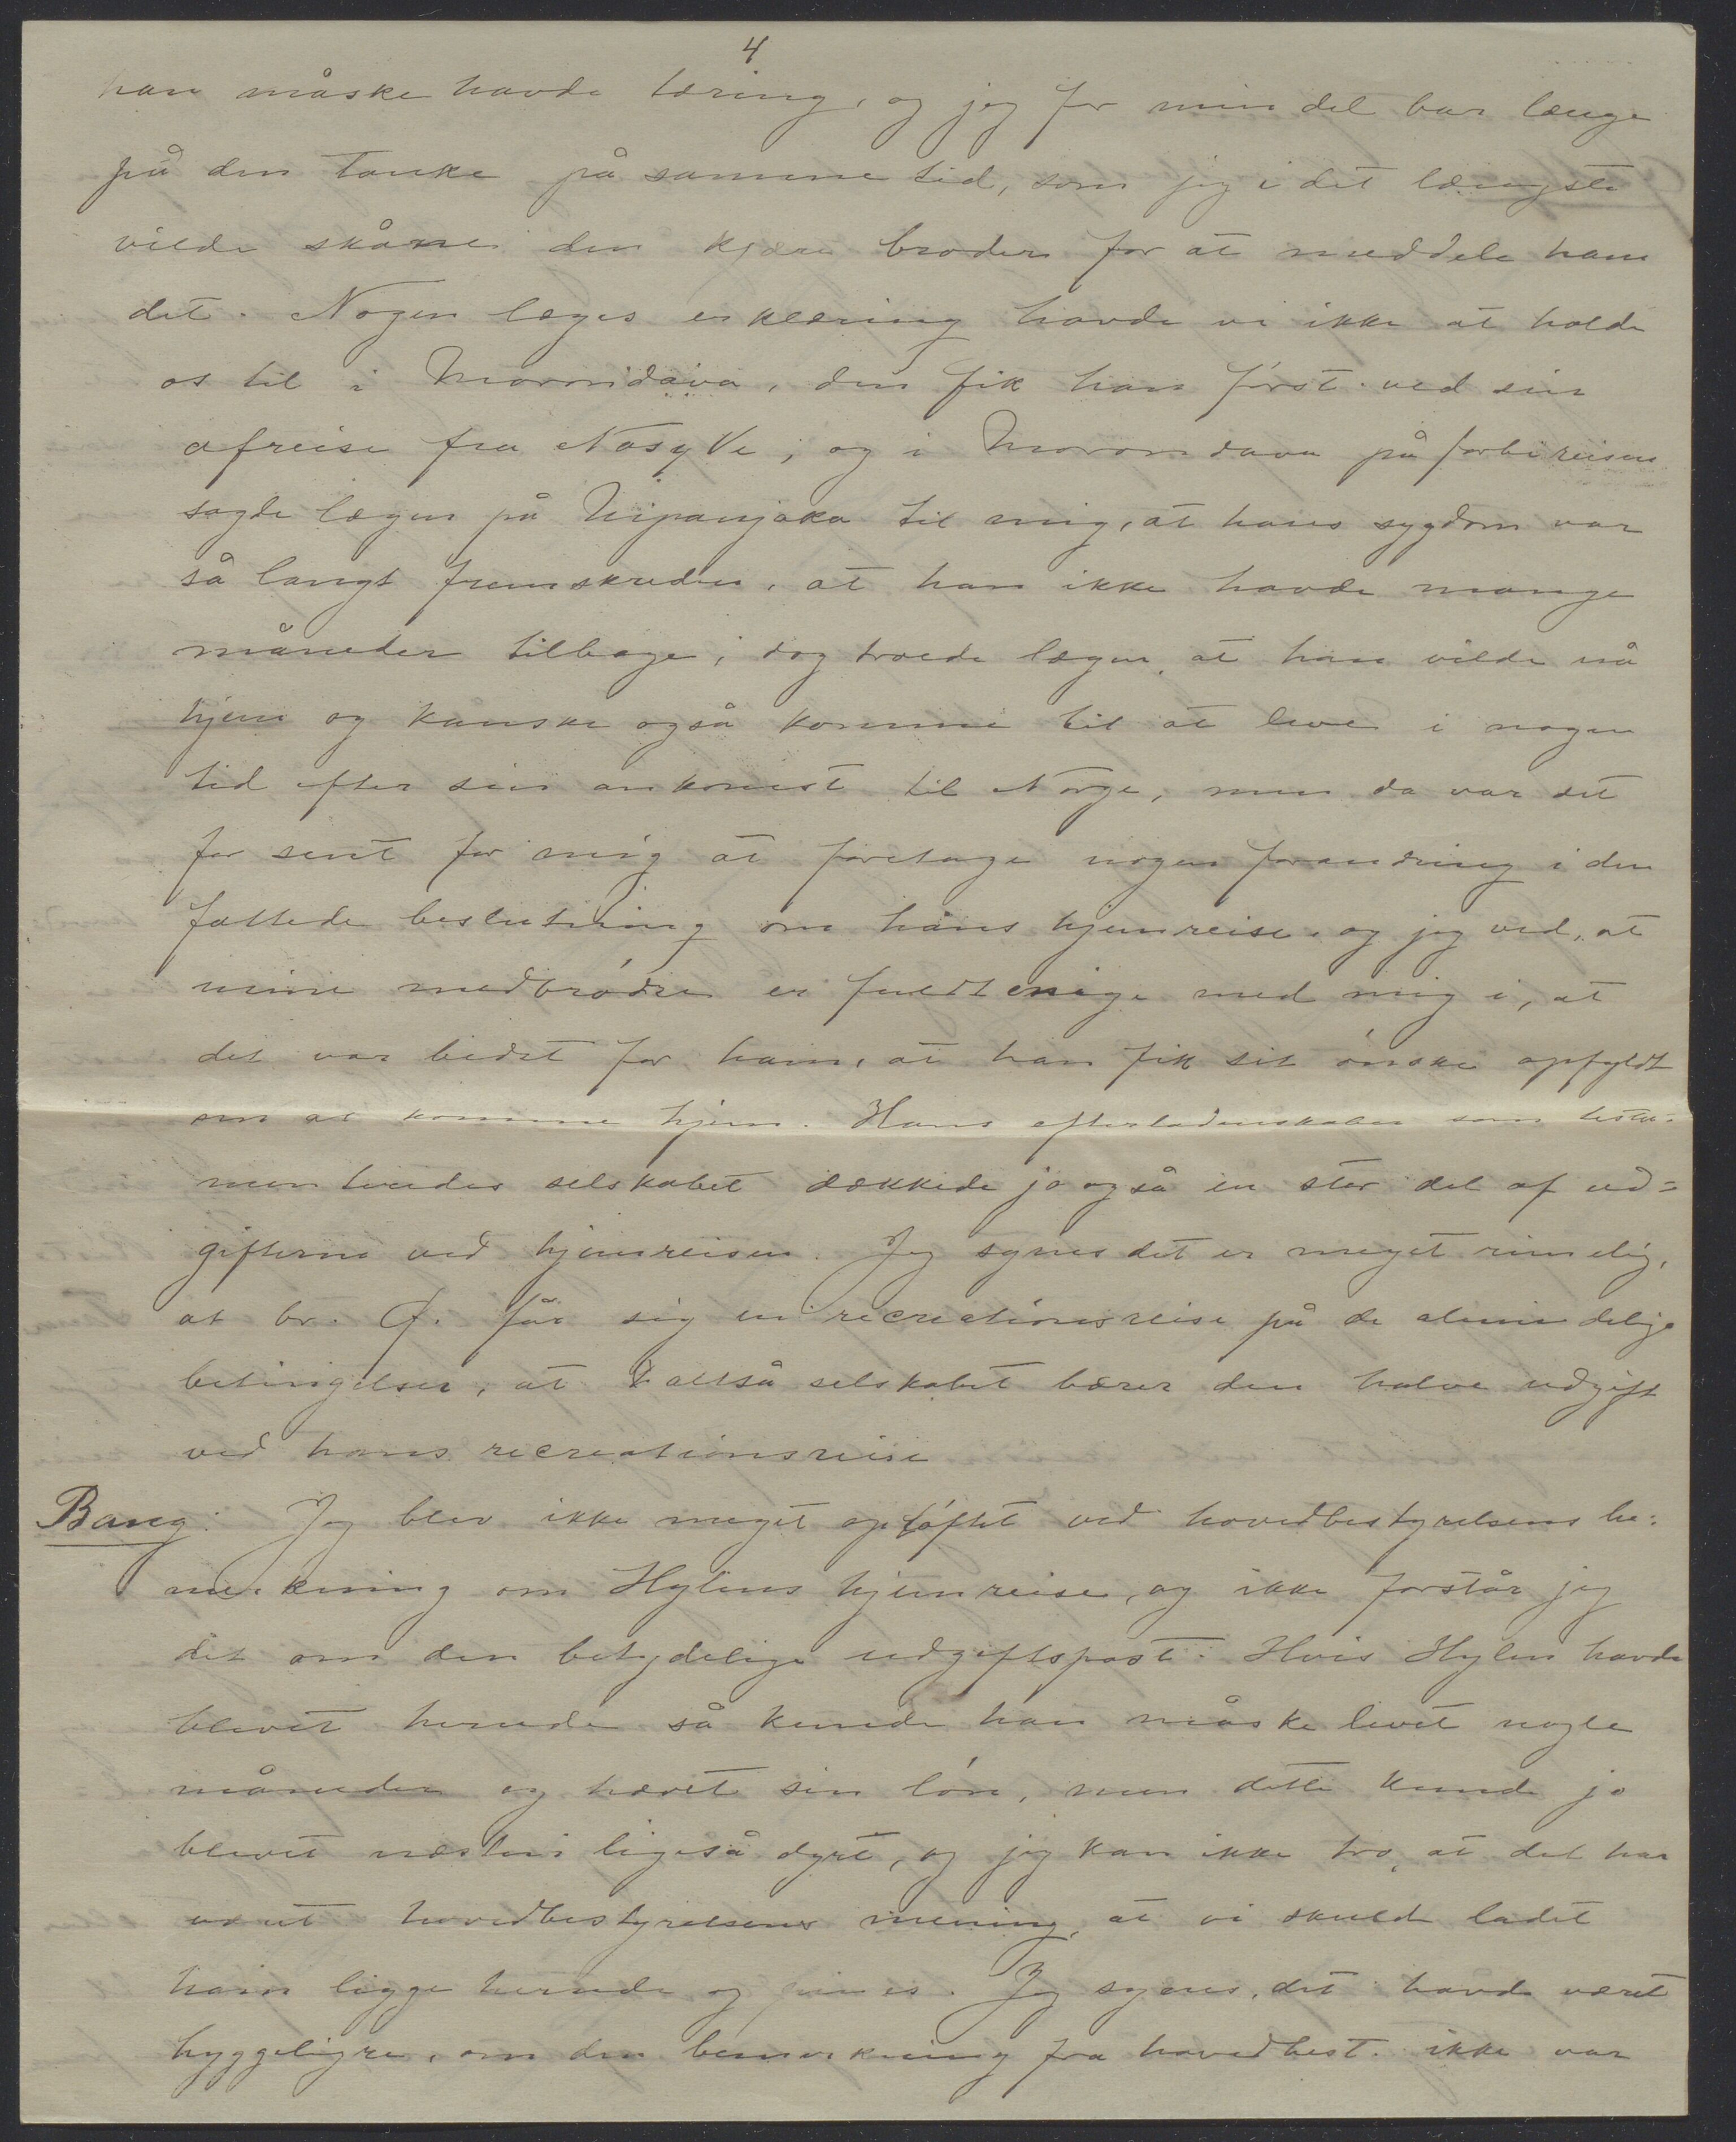 4
han måske havde tæring, og jeg for min del bar længe
på den tanke på samme tid, som jeg i det længste
vilde skåne den kjære broder for at meddele ham
det. Nogen læges erklæring havde vi ikke at holde
os til i Morondava, den fik han først ved sin
afreise fra NosyVe; og i Morondava på forbireisen
sagde lægen på Mpanjaka til mig, at hans sygdom var
så langt fremskreden, at han ikke havde mange
måneder tilbage, dog troede lægen, at han vilde nå
hjem og kanske også komme til at leve i nogen
tid efter sin ankomst til Norge, men da var det
for sent for mig at foretage nogen forandring i den
fattede beslutning om hans hjemreise, og jeg ved, at
mine medbrødre er fuldt enige med mig i, at
det var bedst for ham, at han fik sit ønske opfyldt
om at komme hjem. Hans efterladenskaber som testa-
menteredes selskabet dækkede jo også en stor del af ud=
gifterne ved hjemreisen. Jeg synes det er meget rimelig,
at br. J. får sig en recreationsreise på de almindelige
betingelser, at altså selskabet bærer den halve udgift
ved hans recreationsreise
Bang: Jeg blev ikke meget opløftet ved hovedbestyrelsens be-
merkning om Hylens hjemreise, og ikke forstår jeg
det om den betydelige udgiftspost. Hvis Hylen havde
blevet herude så kunde han måske levet nogle
måneder og hævet sin løn, men dette kunde jo
blevet næsten ligeså dyrt, og jeg kan ikke tro, at det har
været hovedbestyrelsens mening, at vi skulde ladet
ham ligge herude og pines. Jeg synes, det havde været
hyggeligre, om den bemerkning fra hovedbest. ikke var